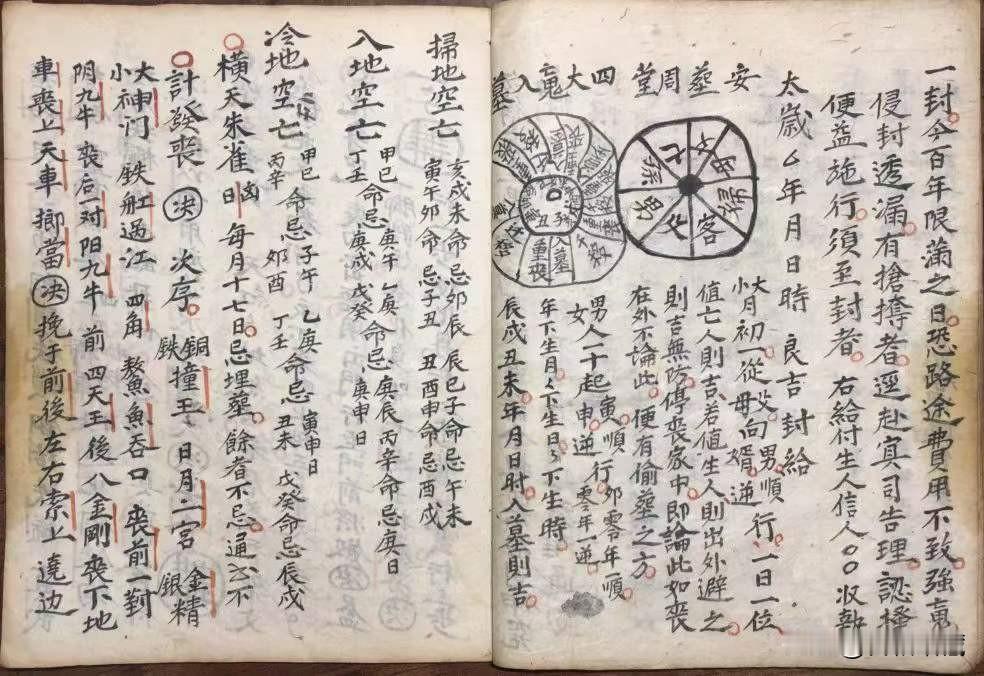 一封今百年限滿之日恐路途費用不致強寅
侵封透漏有搶奪者逕赴冥司告理認搔
便益施行須至封者 右給付生人信人〇〇収執
太歲厶年月日時 良吉封給
安葬周堂 四大亮入墓
亡 女 客 女 男 孫
亡 墓 重喪 入墓
大月初一從父向男順行一日一位
小月初一從母向婿逆
值亡人則吉若值生人則出外避之
則吉無防停喪家中即論此如喪
在外不論此便有偷葬之方
男人一十起寅順行卯零年一順
女 申逆 零年一逆
年下生月月下生日日下生時
辰戌丑未年月日时入墓則吉
掃地空亡 亥戌未命忌卯辰 辰巳子命忌午未
寅午卯命忌子丑 丑酉申命忌酉戌
入地空亡 甲巳命忌庚午 乙庚命忌庚辰 丙辛命忌庚日
丁壬命忌庚戌 戊癸命忌庚申日
冷地空亡 甲巳命忌子午 乙庚命忌寅申日
丙辛命忌卯酉 丁壬命忌丑未 戊癸命忌辰戌
橫天朱雀日 每月十七日忌埋墓餘者不忌通云不
凶
計發喪決次序 銅鉄撞王 日月二宮 金銀精
大小神门 铁舡過江 四角鰲魚魚吞口 喪前一對
阴九牛 喪后一对阳九牛 前四天王後八金剛喪下地
車喪上天車 掷當決挽子前後左右索上遶边